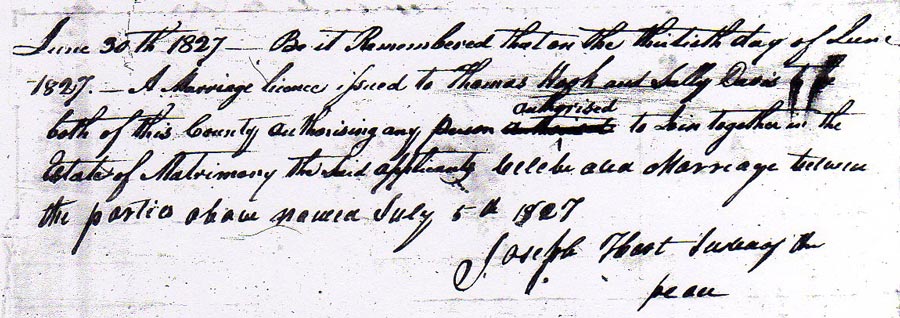 June 30th 1827 — Be it Remembered that on the thirtieth day of June
1827. — A Marriage licence issued to Thomas Hogh and Sally Davis
both of this County authorising any person authorised to Join together in the
Estate of Matrimony the said applicants Celebrated Marriage between
the parties above named July 5th 1827
Joseph Host of the
peace